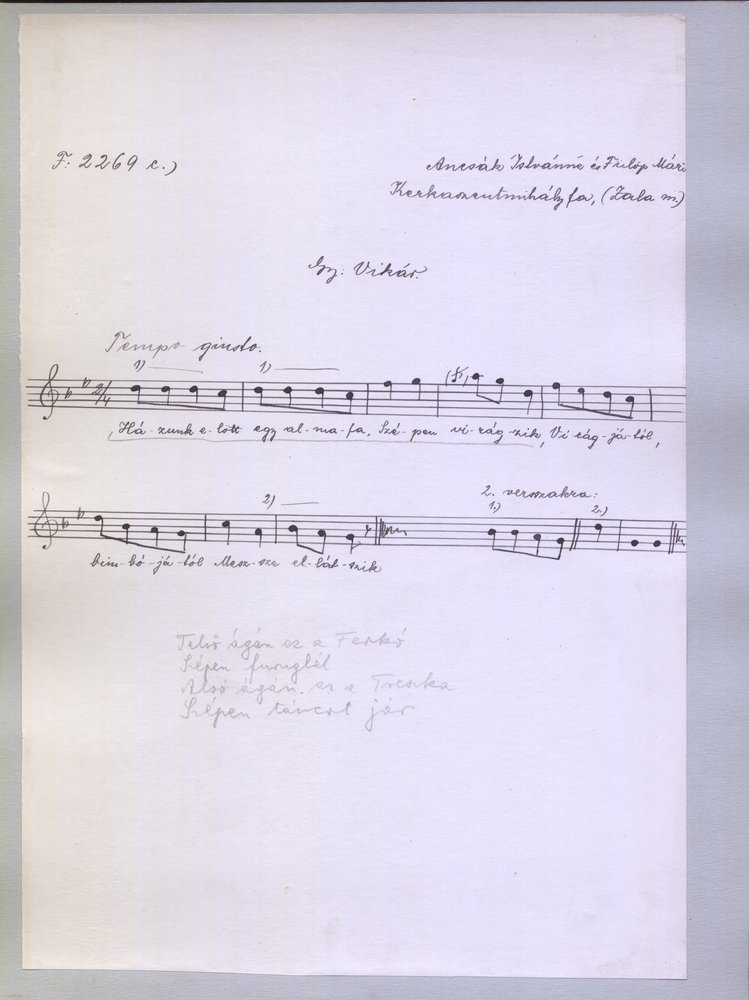 F. 2269 c.)
Ancsák Istvánné és Fülöp Mári
Kerkaszentmihályfa, (Zala m.)
Gy. Vikár.
Tempo giusto.
1) 1)
2/4
Há-zunk e-lött egy al-ma-fa, Szé-pen vi-rág-zik, Vi-rág-já-tól,
2) 2. versszakra:
1.) 2.)
bim-bó-já-tól Mesz-sze el-lát-szik
Felső ágán ez a Ferkó
Szépen furuglál
Alsó ágán ez a Treszka
Szépen táncot jár